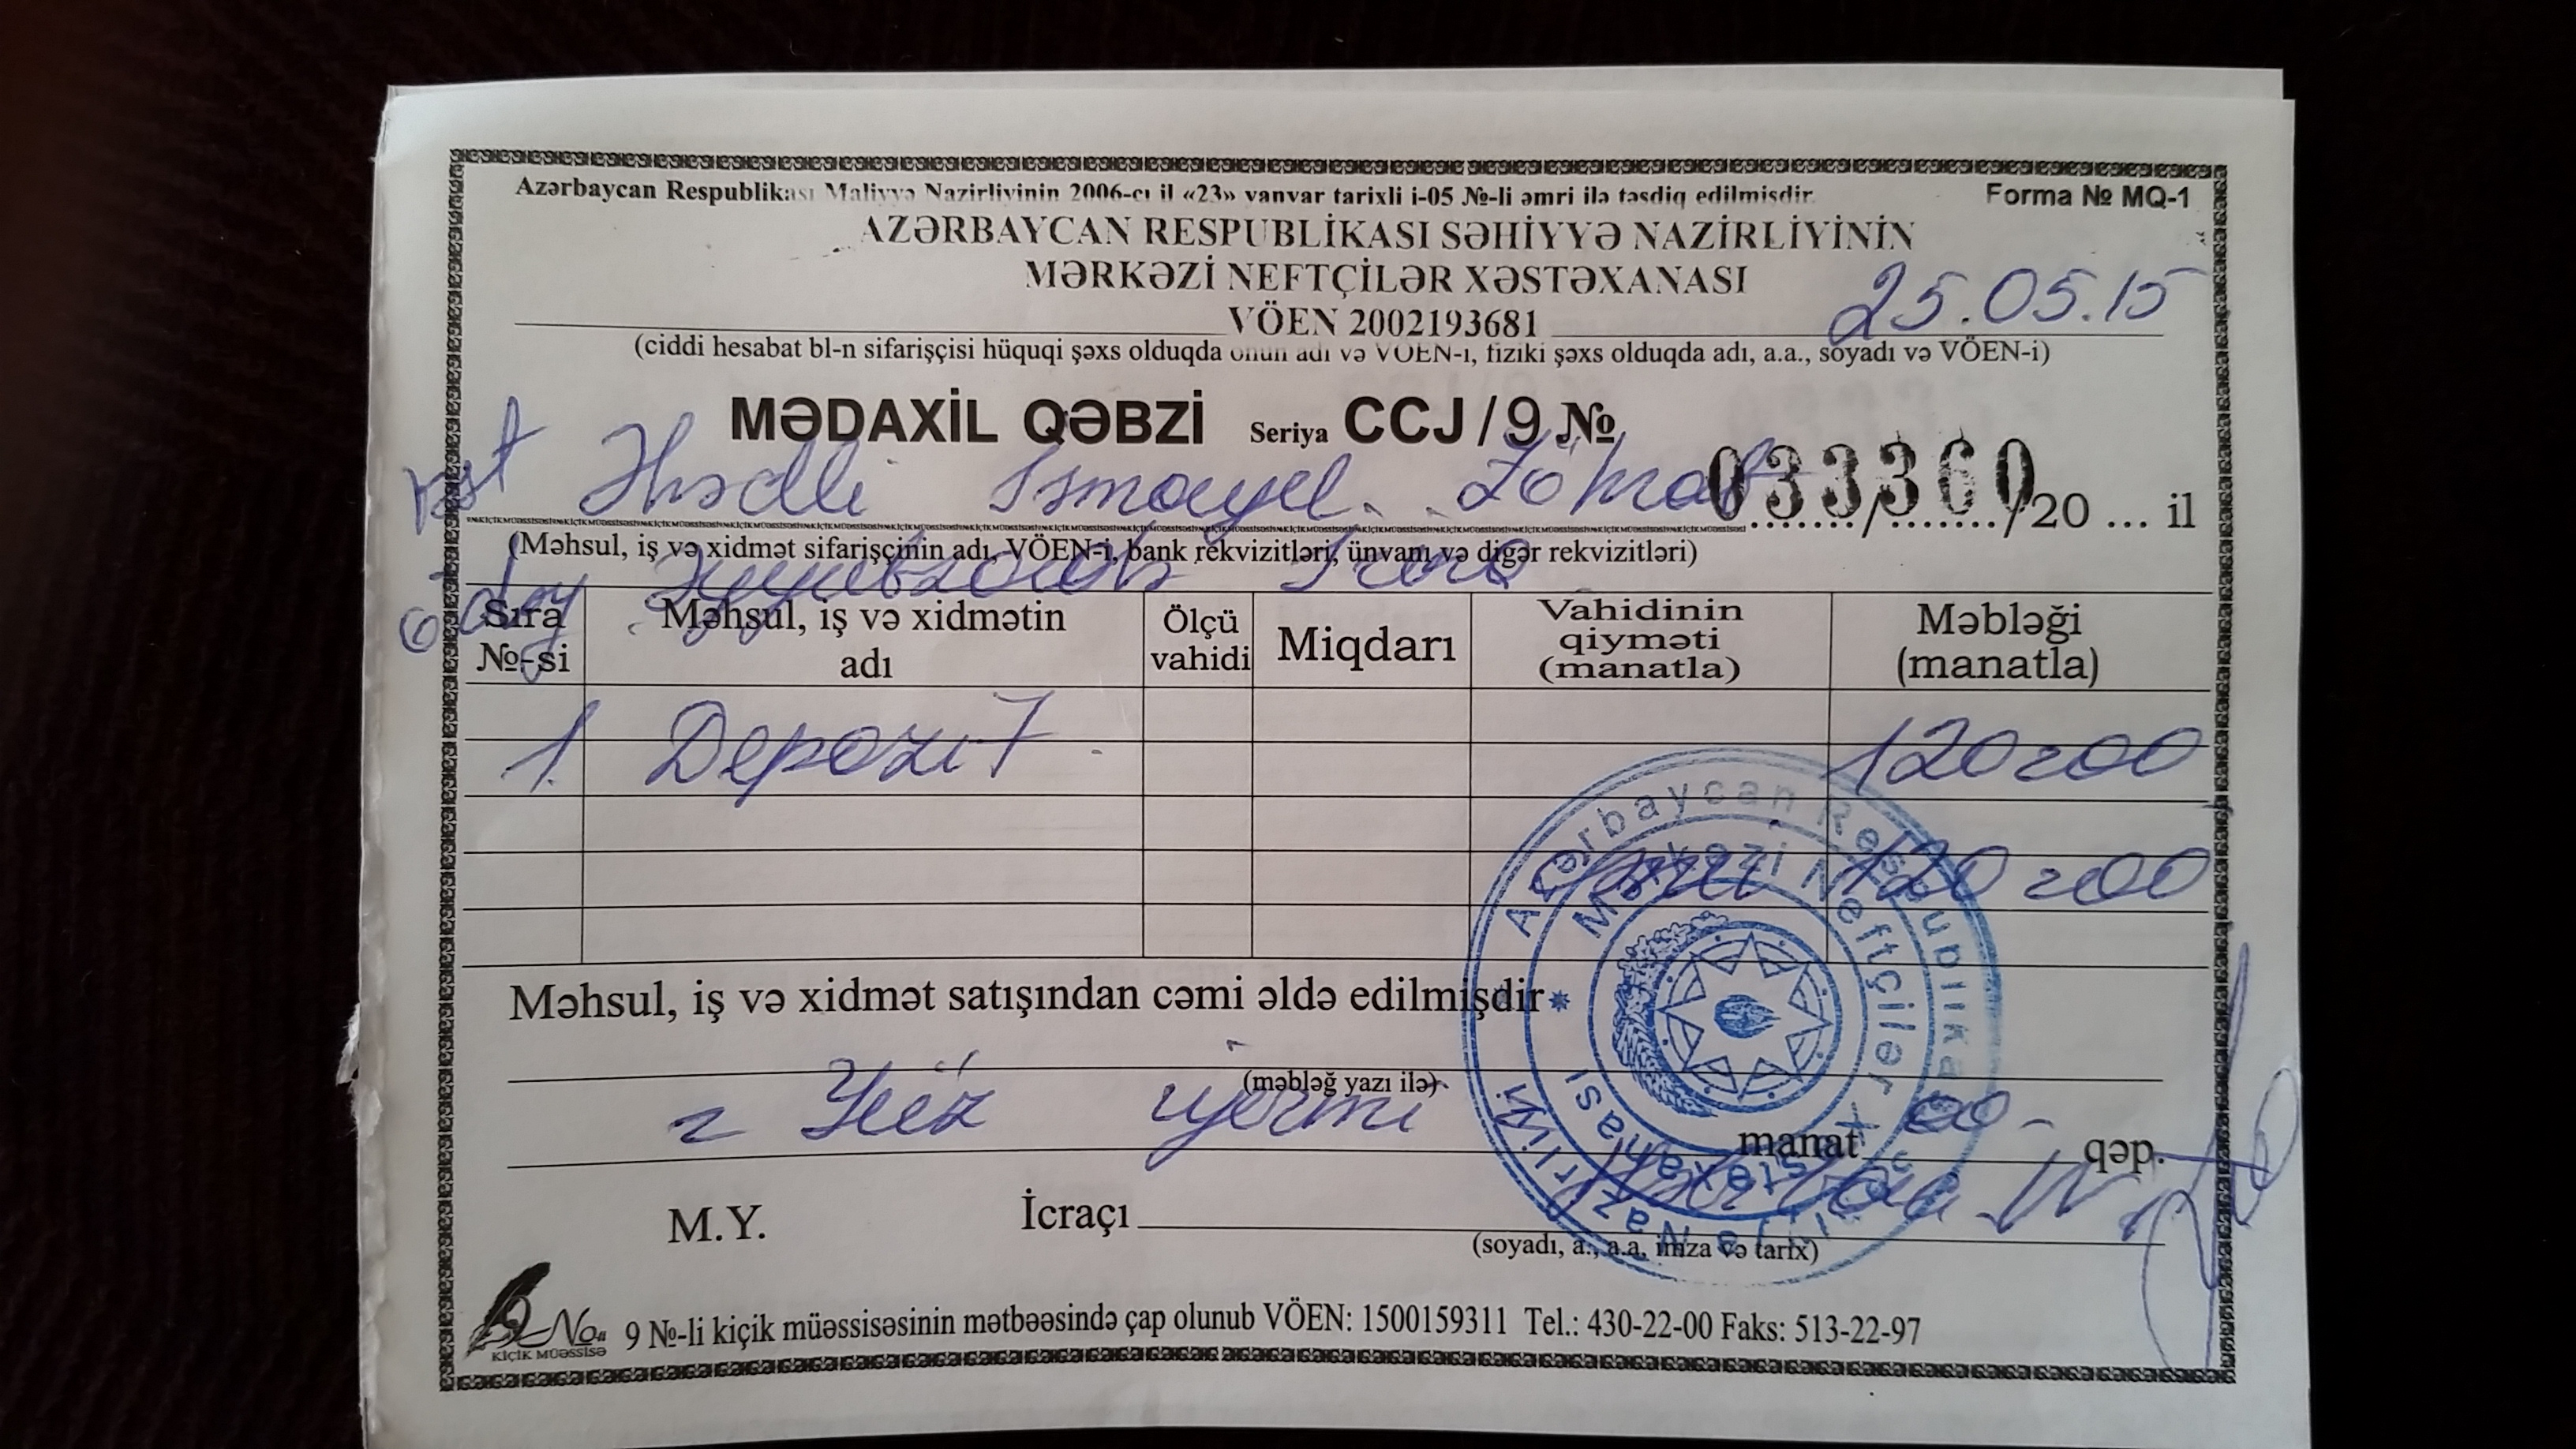 Azərbaycan Respublikası Maliyyə Nazirliyinin 2006-cı il «23» yanvar tarixli i-05 №-li əmri ilə təsdiq edilmişdir.
Forma № MQ-1
AZƏRBAYCAN RESPUBLİKASI SƏHİYYƏ NAZİRLİYİNİN
MƏRKƏZİ NEFTÇİLƏR XƏSTƏXANASI
25.05.15
VÖEN 2002193681
(ciddi hesabat bl-n sifarişçisi hüquqi şəxs olduqda onun adı və VÖEN-i, fiziki şəxs olduqda adı, a.a., soyadı və VÖEN-i)
MƏDAXİL QƏBZİ Seriya CCJ/9 №
033360
Əhədli İsmayıl
....../......./20 ... il
(Məhsul, iş və xidmət sifarişçinin adı, VÖEN-i, bank rekvizitləri, ünvanı və digər rekvizitləri)
Sıra №-si
Məhsul, iş və xidmətin adı
Ölçü vahidi
Miqdarı
Vahidinin qiyməti (manatla)
Məbləği (manatla)
1. Depozit 120=00
Cəmi 120=00
Məhsul, iş və xidmət satışından cəmi əldə edilmişdir
(məbləğ yazı ilə)
= Yüz iyirmi manat 00- qəp.
M.Y. İcraçı
(soyadı, a., a.a, imza və tarix)
Azərbaycan Respublikası Səhiyyə Nazirliyi
Mərkəzi Neftçilər Xəstəxanası
No.
KİÇİK MÜƏSSİSƏ
9 №-li kiçik müəssisəsinin mətbəəsində çap olunub VÖEN: 1500159311 Tel.: 430-22-00 Faks: 513-22-97